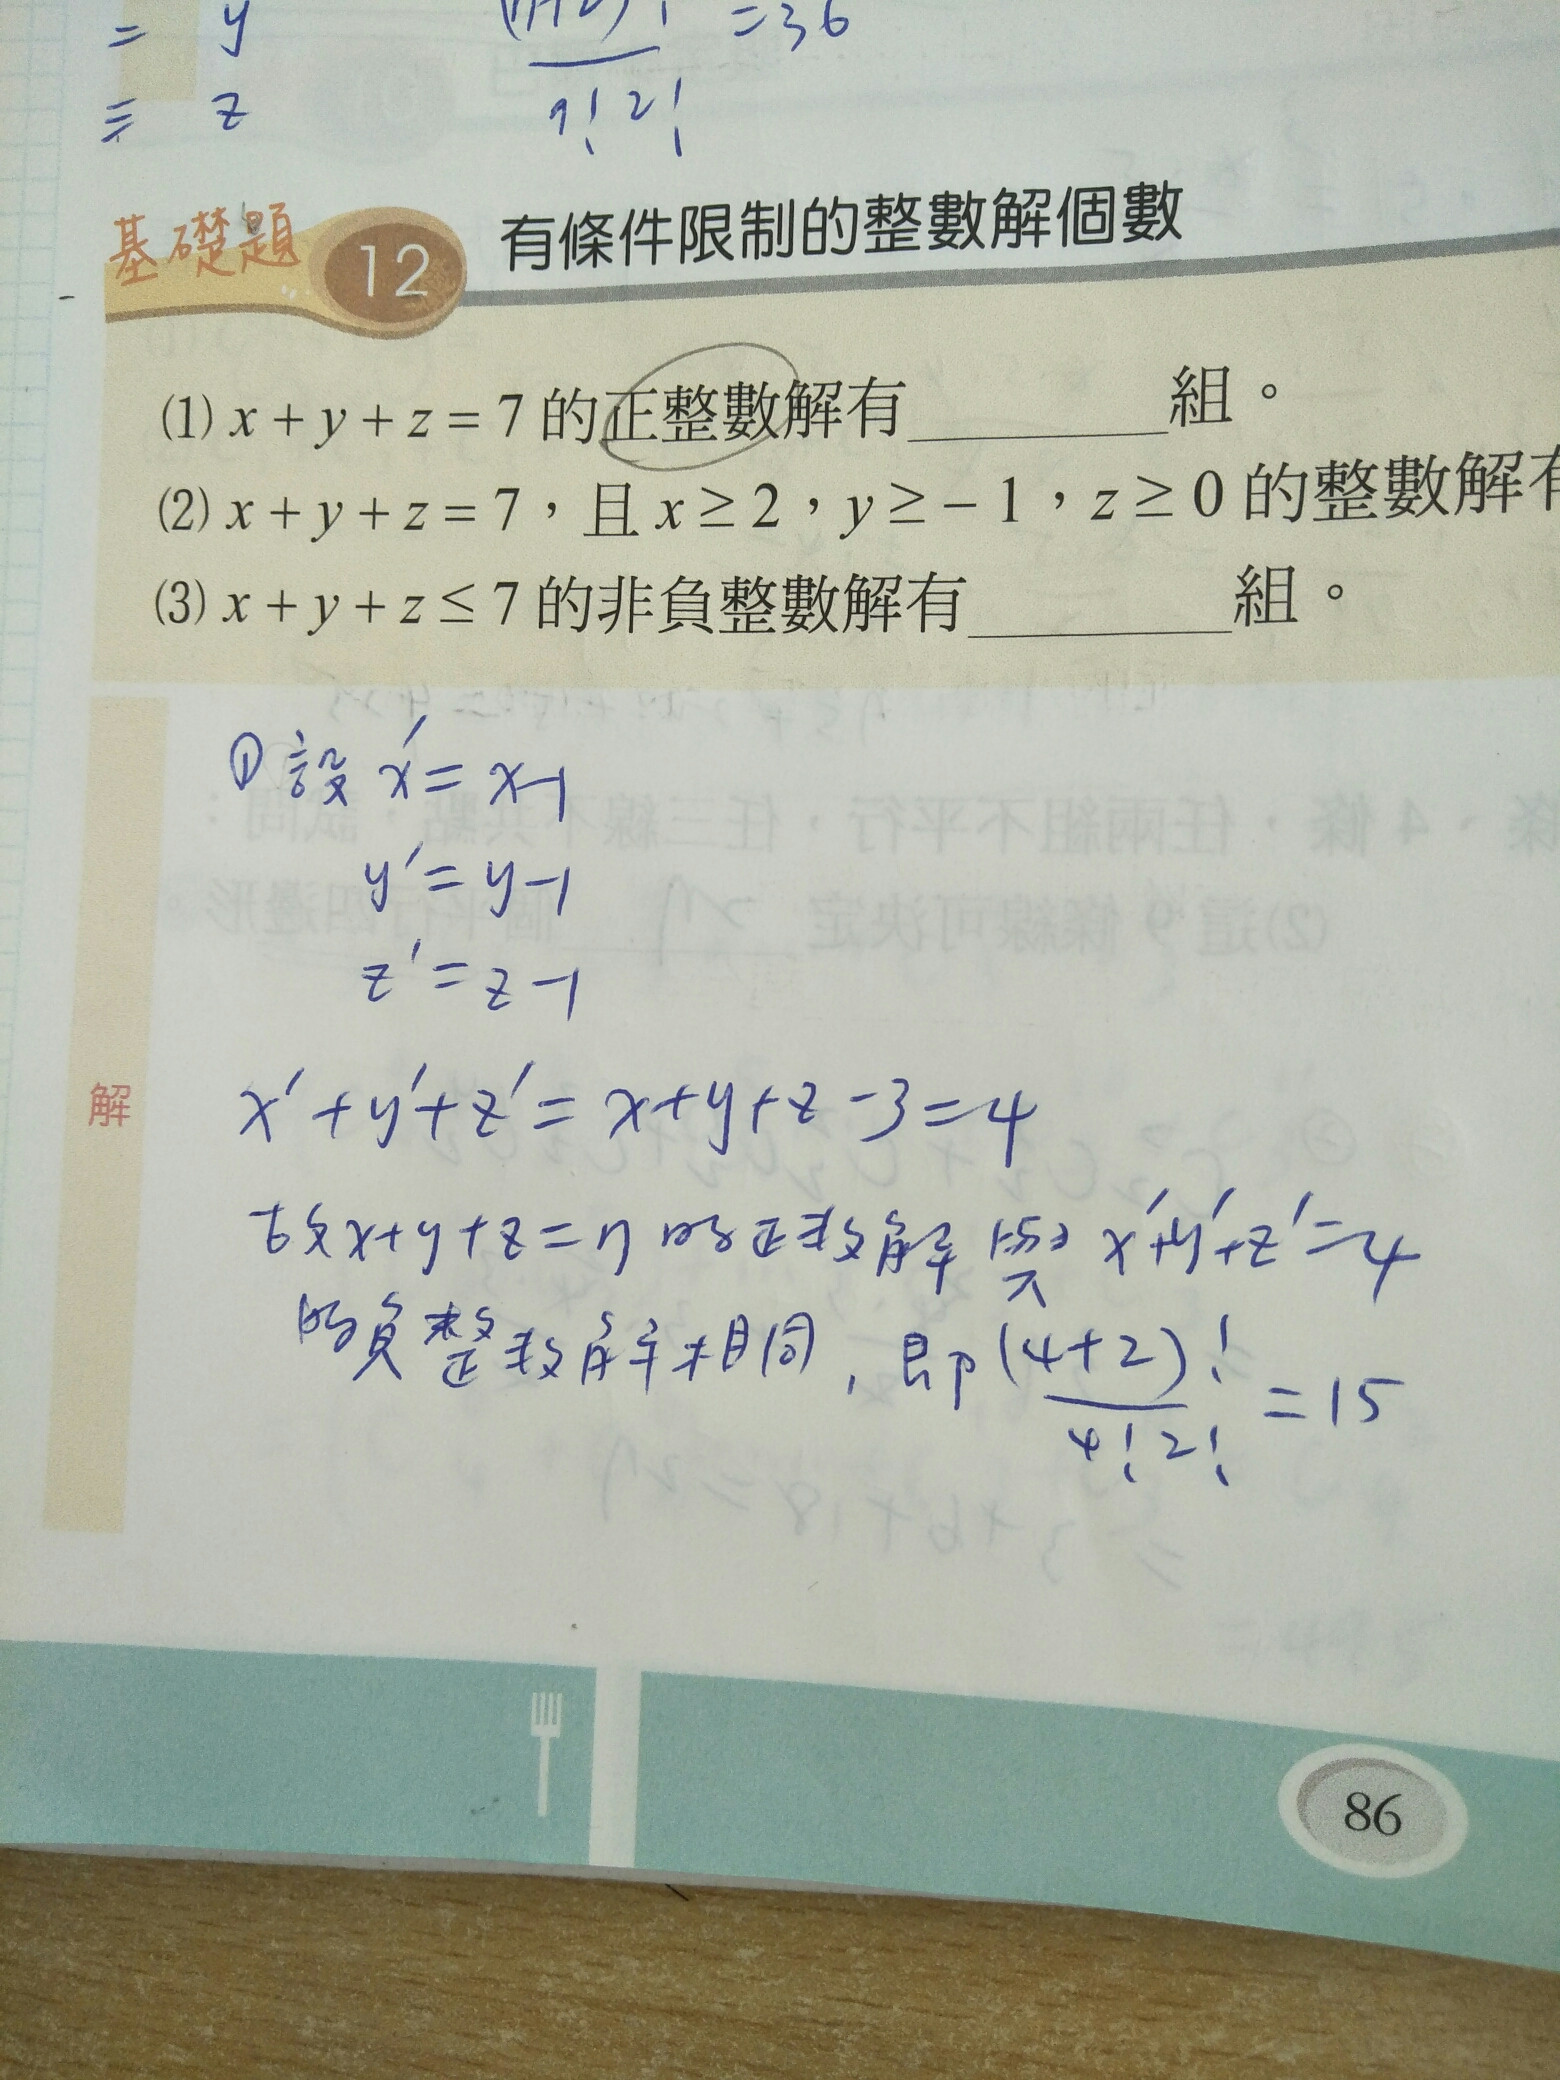 = y (n+2)! =36
≡ z 7! 2!
基礎題 12 有條件限制的整數解個數
(1) x + y + z = 7 的正整數解有________組。
(2) x + y + z = 7,且 x ≥ 2,y ≥ − 1,z ≥ 0 的整數解有
(3) x + y + z ≤ 7 的非負整數解有________組。
① 設 x' = x-1
y' = y-1
z' = z-1
解
x' + y' + z' = x+y+z -3 = 4
故x+y+z=7 的正整數解與 x'+y'+z'=4
的負整數解相同, 即 (4+2)! / 4! 2! = 15
86